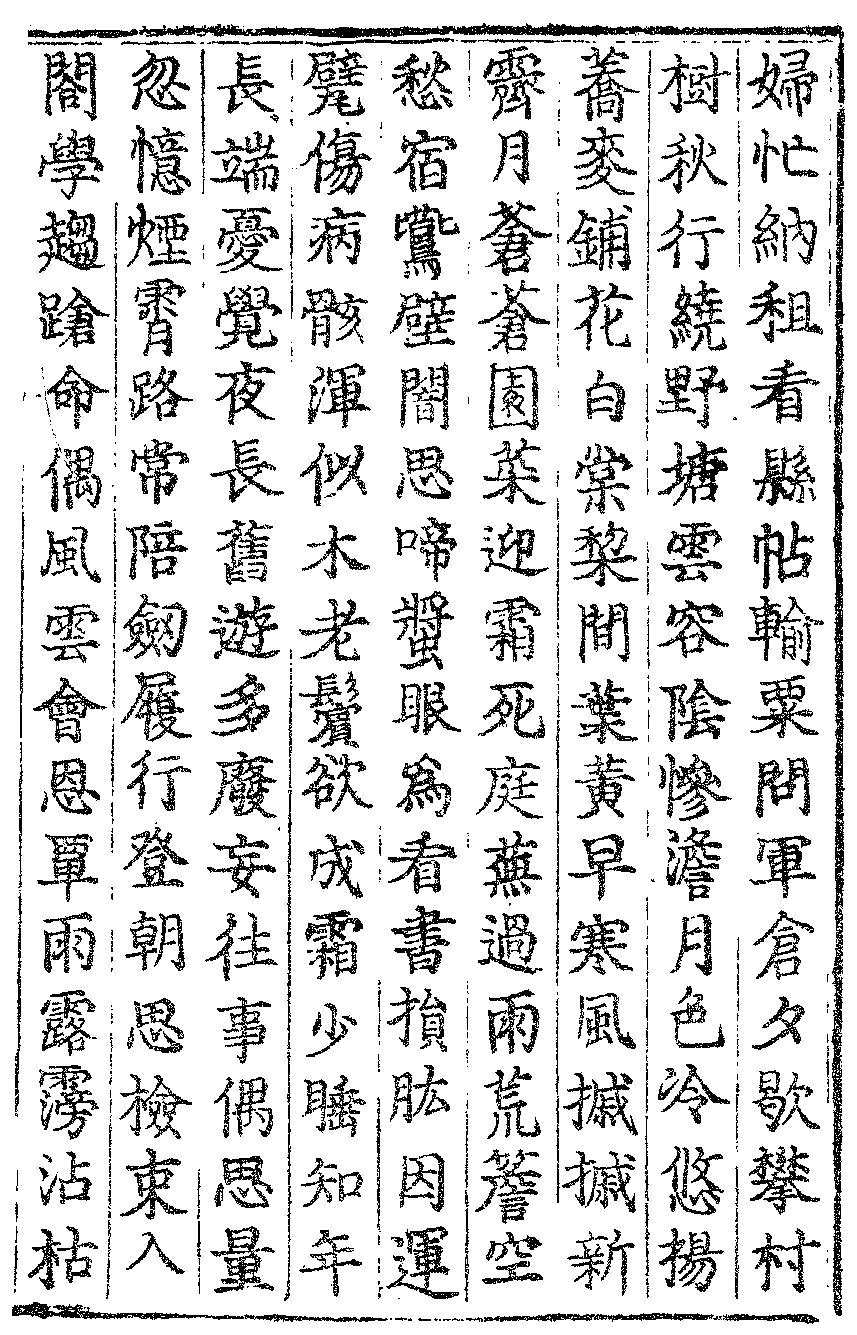 婦忙納租看縣帖輸粟問軍倉夕歇攀村
樹秋行繞野塘雲容陰慘澹月色冷悠揚
蕎麥鋪花白棠棃間葉黃早寒風摵摵新
霽月蒼蒼園菜迎霜死庭蕪過雨荒簷空
愁宿鷰壁闇思啼螿眼爲看書損肱因運
甓傷病骸渾似木老鬢欲成霜少睡知年
長端憂覺夜長舊遊多廢妄往事偶思量
忽憶煙霄路常陪劒履行登朝思檢束入
閤學趨蹌命偶風雲會恩覃雨露霶沾枯